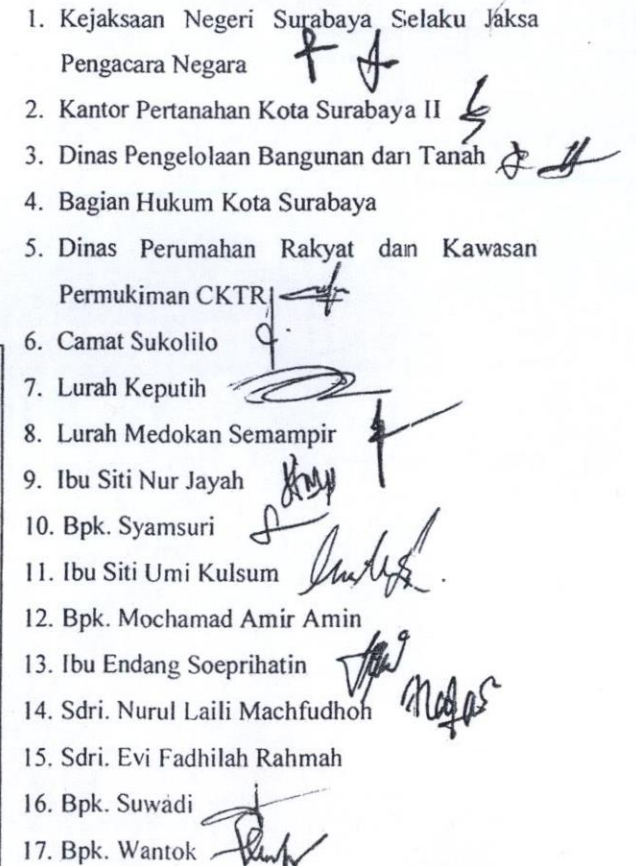 1. Kejaksaan Negeri Surabaya Selaku Jaksa
Pengacara Negara
2. Kantor Pertanahan Kota Surabaya II
3. Dinas Pengelolaan Bangunan dan Tanah
4. Bagian Hukum Kota Surabaya
5. Dinas Perumahan Rakyat dan Kawasan
Permukiman CKTR
6. Camat Sukolilo
7. Lurah Keputih
8. Lurah Medokan Semampir
9. Ibu Siti Nur Jayah
10. Bpk. Syamsuri
11. Ibu Siti Umi Kulsum
12. Bpk. Mochamad Amir Amin
13. Ibu Endang Soeprihatin
14. Sdri. Nurul Laili Machfudhoh
15. Sdri. Evi Fadhilah Rahmah
16. Bpk. Suwadi
17. Bpk. Wantok